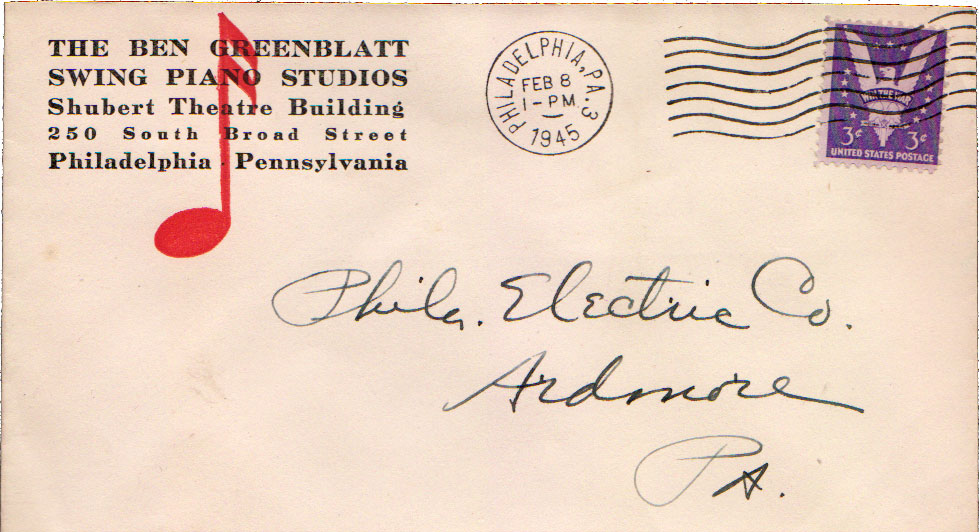 THE BEN GREENBLATT
SWING PIANO STUDIOS
Shubert Theatre Building
250 South Broad Street
Philadelphia Pennsylvania
PHILADELPHIA, PA. 3
FEB 8
1 - PM
1945
WIN THE WAR
3¢ 3¢
UNITED STATES POSTAGE
Phila. Electric Co.
Ardmore
Pa.